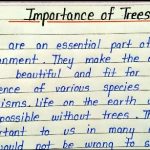 Importance of Trees
are an essential part of
onment. They make the
beautiful and fit for
ence of various species
isms. Life on the earth
possible without trees. Th
rtant to us in many
ould not be wrong to s